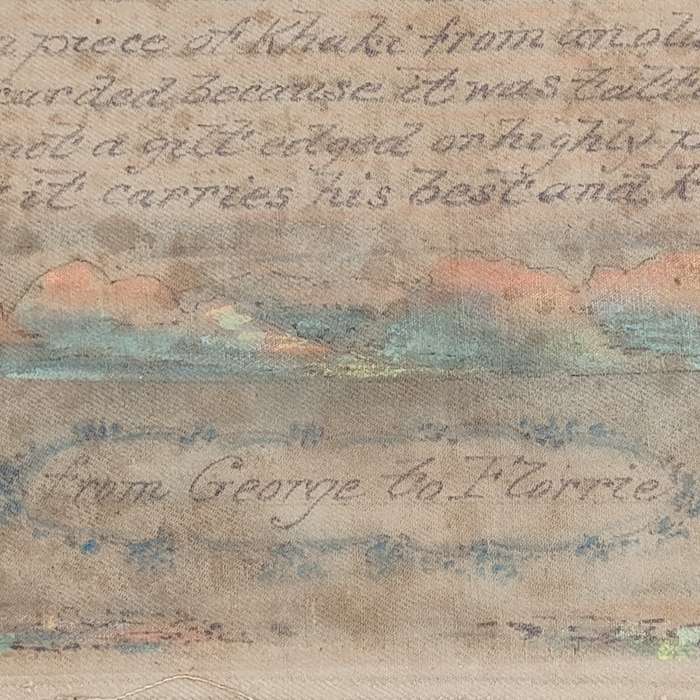 piece of Khaki from an old
carded, because it was tatt
not a gilt edged or highly p
it carries his best and k
from George to Florrie